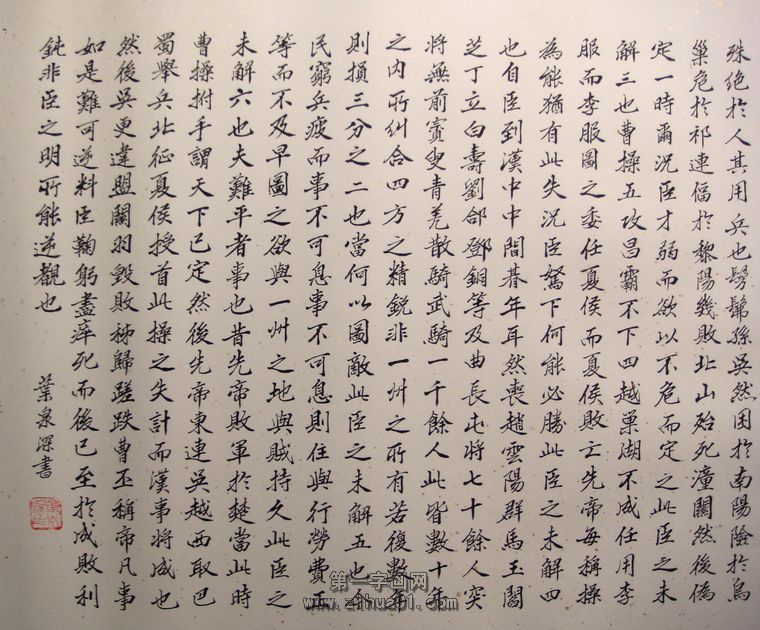 殊絶於人其用兵也髣髴孫吳然困於南陽險於烏
巢危於祁連偪於黎陽幾敗北山殆死潼關然後偽
定一時爾況臣才弱而欲以不危而定之此臣之未
解三也曹操五攻昌霸不下四越巢湖不成任用李
服而李服圖之委任夏侯而夏侯敗亡先帝每稱操
為能猶有此失況臣駑下何能必勝此臣之未解四
也自臣到漢中中間朞年耳然喪趙雲陽群馬玉閻
芝丁立白壽劉郃鄧銅等及曲長屯將七十餘人突
將無前賨叟青羌散騎武騎一千餘人此皆數十年
之內所糾合四方之精銳非一州之所有若復數年
則損三分之二也當何以圖敵此臣之未解五也今
民窮兵疲而事不可息事不可息則住與行勞費正
等而不及早圖之欲與一州之地與賊持久此臣之
未解六也夫難平者事也昔先帝敗軍於楚當此時
曹操拊手謂天下已定然後先帝東連吳越西取巴
蜀舉兵北征夏侯授首此操之失計而漢事將成也
然後吳更違盟關羽毀敗秭歸蹉跌曹丕稱帝凡事
如是難可逆料臣鞠躬盡瘁死而後已至於成敗利
鈍非臣之明所能逆觀也
葉泉深書
第一字画网
www.zihua01.com